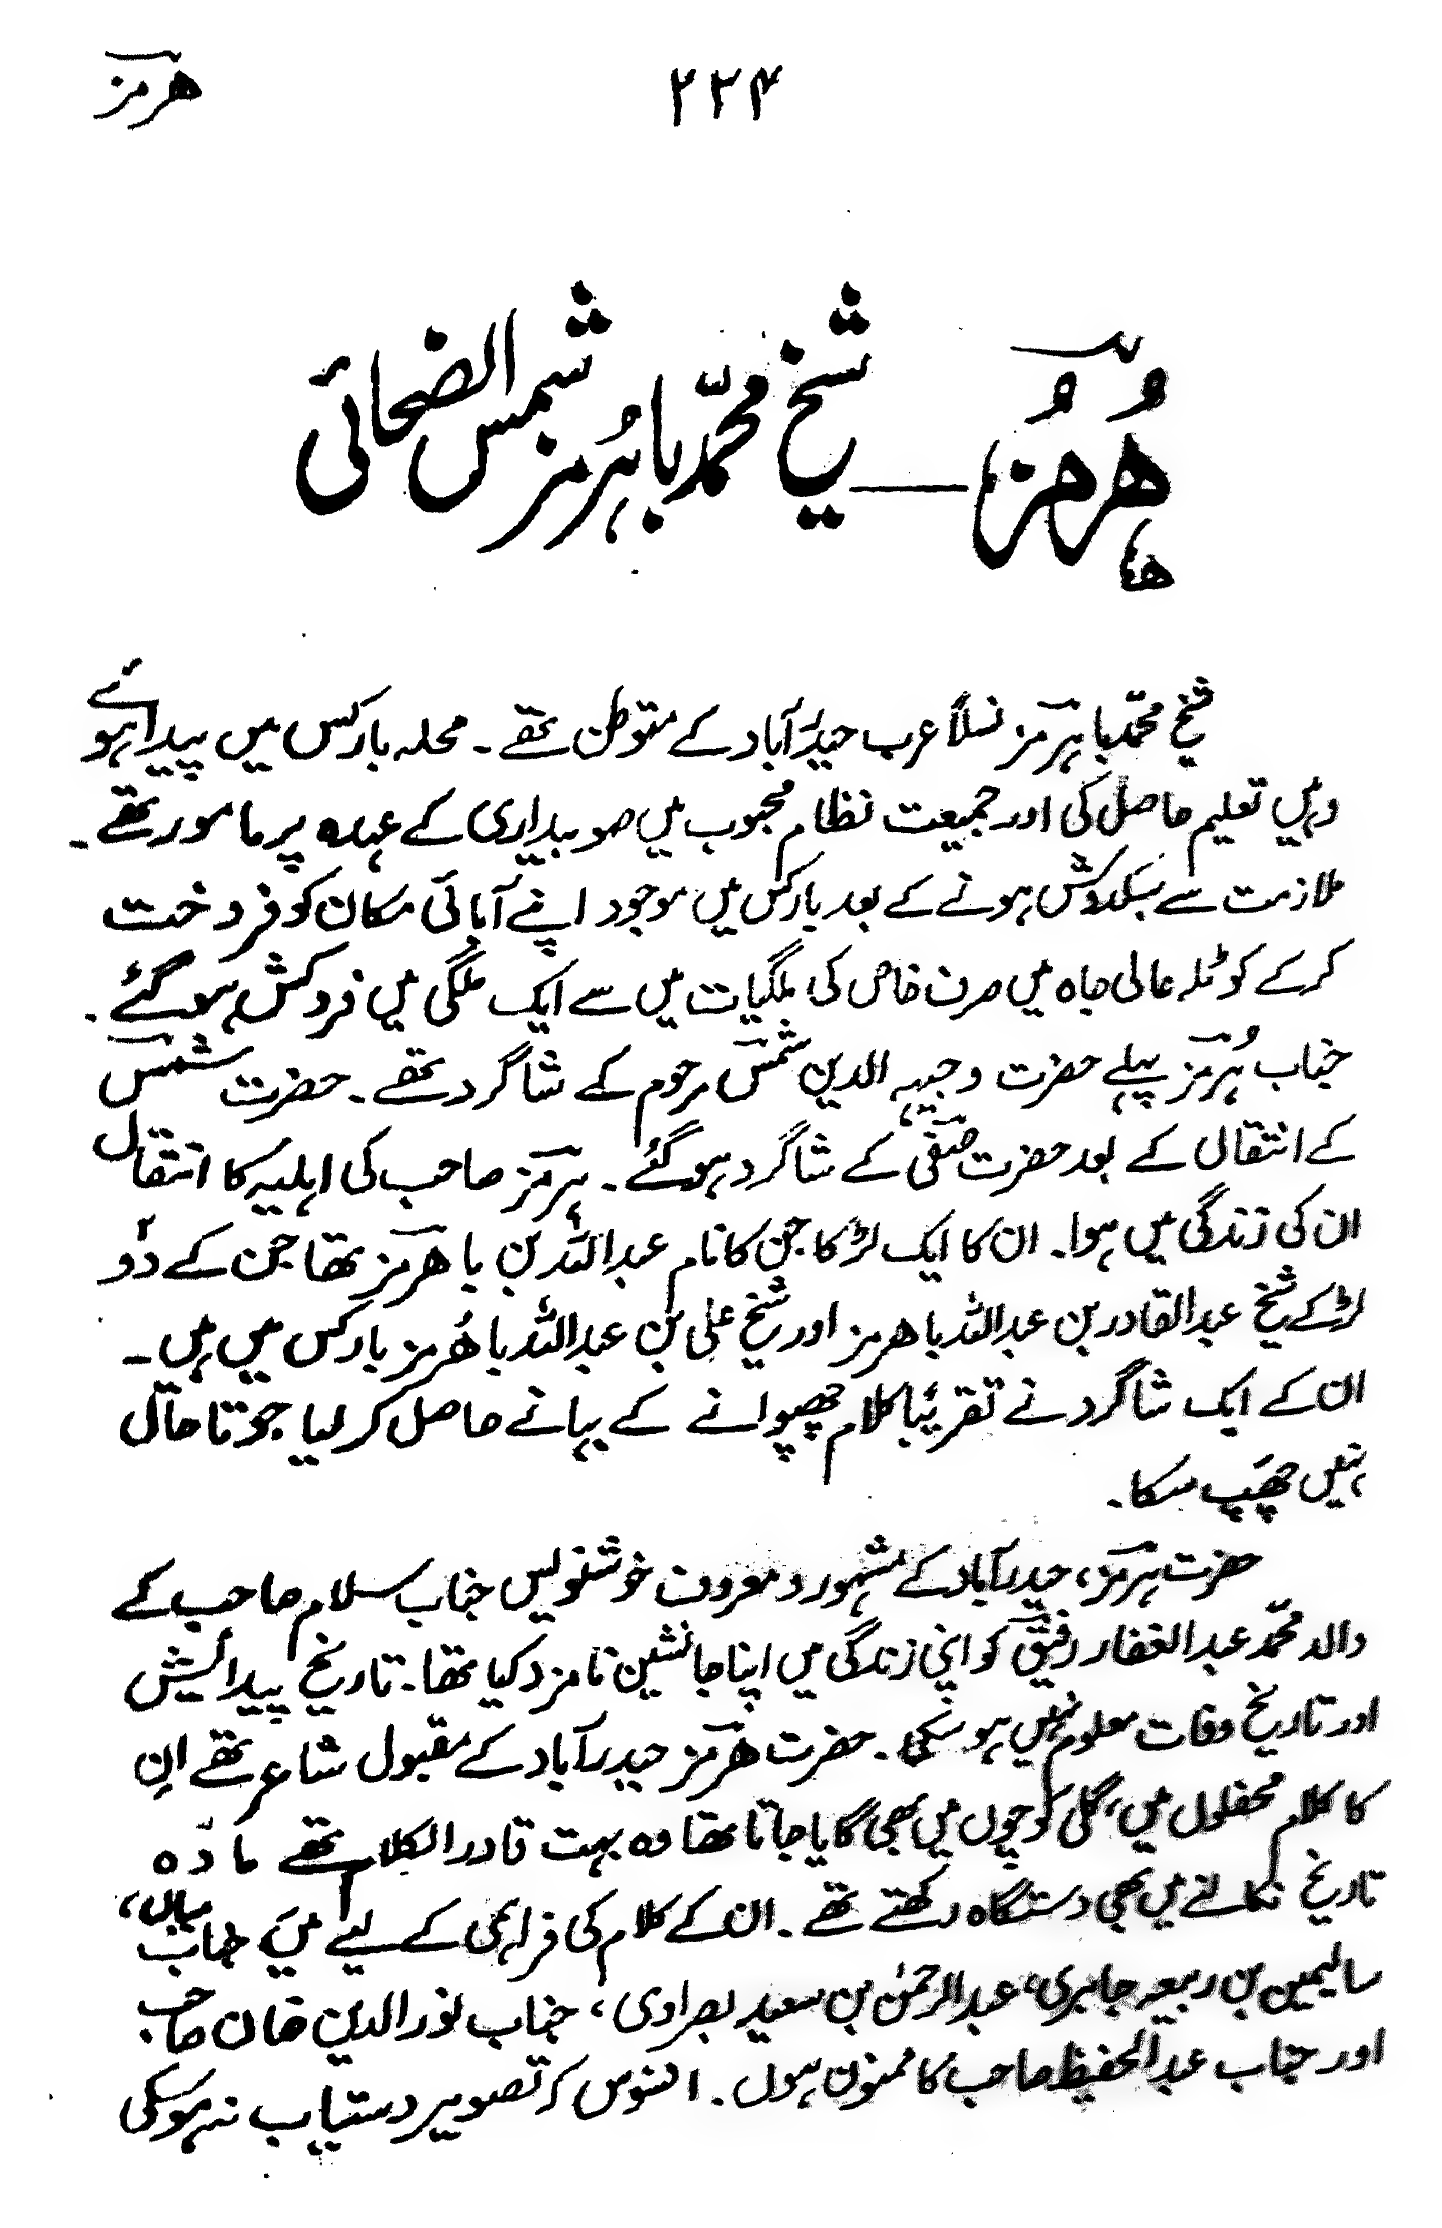 ھرمز
۲۲۴
ہُرمُز — شیخ محمّد باہُرمز شمس الضحائی
شیخ محمّد باہرمز نسلاً عرب حیدرآباد کے متوطن تھے۔ محلہ بارکس میں پیدا ہوئے
وہیں تعلیم حاصل کی اور جمیعت نظام محبوب میں صوبیداری کے عہدہ پر مامور تھے۔
ملازمت سے سبکدوش ہونے کے بعد بارکس میں موجود اپنے آبائی مکان کو فروخت
کرکے کوٹلہ عالی جاہ میں صرف خاص کی ملگیات میں سے ایک ملگی میں فروکش ہوگئے۔
جناب ہُرمز پہلے حضرت وجیہہ الدین شمس مرحوم کے شاگرد تھے۔ حضرت شمس
کے انتقال کے بعد حضرت صفی کے شاگرد ہوگئے۔ ہرمز صاحب کی اہلیہ کا انتقال
ان کی زندگی میں ہوا۔ ان کا ایک لڑکا جن کا نام عبداللہ بن باھرمز تھا جن کے دو
لڑکے شیخ عبدالقادر بن عبداللہ باھرمز اور شیخ علی بن عبداللہ باھُرمز بارکس میں ہیں۔
ان کے ایک شاگرد نے تقریباً کلام چھپوانے کے بہانے حاصل کرلیا جو تاحال
نہیں چھَپ سکا۔
حضرت ہرمز، حیدرآباد کے مشہور و معروف خوشنویس جناب سلام صاحب کے
والد محمّد عبدالغفار رفیق کو اپنی زندگی میں اپنا جانشین نامزد کیا تھا۔ تاریخ پیدائش
اور تاریخ وفات معلوم نہیں ہو سکی۔ حضرت ھرمز حیدرآباد کے مقبول شاعر تھے ان
کا کلام محفلوں میں، گلی کوچوں میں بھی گایا جاتا تھا وہ بہت قادر الکلام تھے مادّہ
تاریخ نکالنے میں بھی دستگاہ رکھتے تھے۔ ان کے کلام کی فراہمی کے لیے میں جناب
سالیمین بن ربیعہ جابری، عبدالرحمٰن بن سعید بصراوی، جناب نورالدین خان صاحب
اور جناب عبدالحفیظ صاحب کا ممنون ہوں۔ افسوس کہ تصویر دستیاب نہ ہوسکی